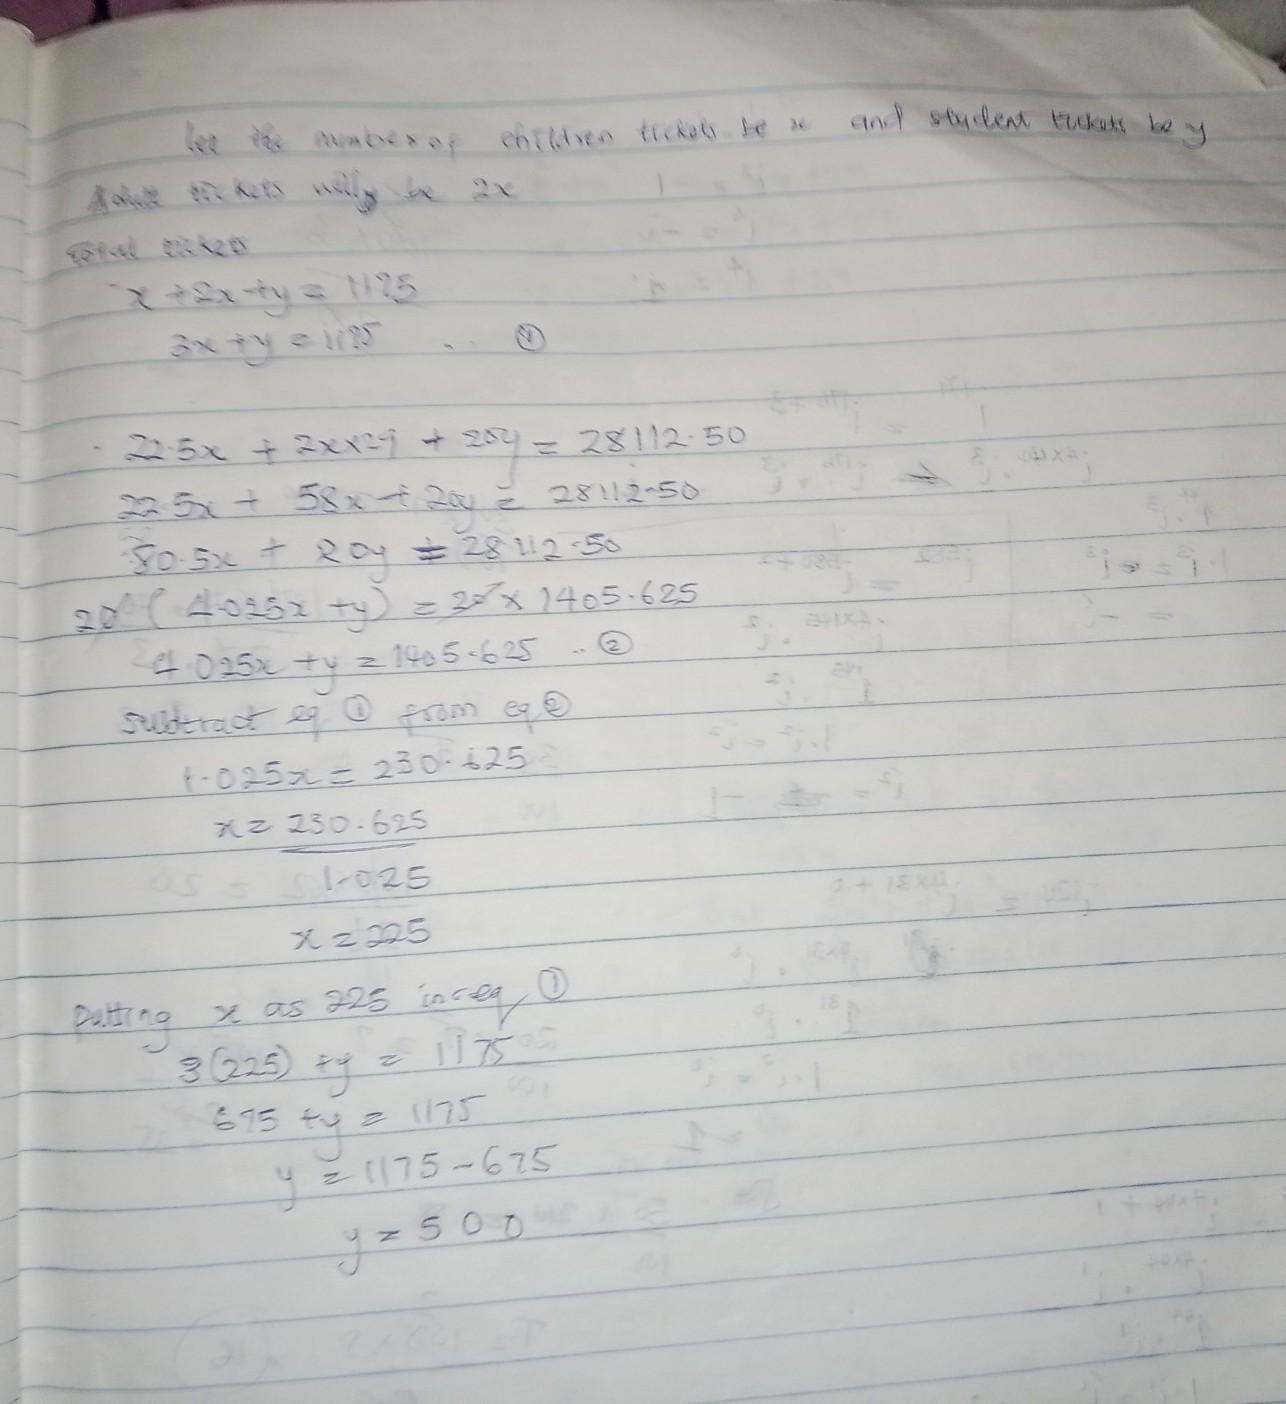 let the number of children tickets be x and student tickets be y
Adult tickets will be 2x
total tickets
x + 2x + y = 1175
3x + y = 1175 .. ①
22.5x + 2x×29 + 20y = 28112.50
22.5x + 58x + 20y = 28112.50
80.5x + 20y = 28112.50
20 ( 4.025x + y) = 20 × 1405.625
4.025x + y = 1405.625 .. ②
subtract eq ① from eq ②
1.025x = 230.625
x = 230.625
1.025
x = 225
putting x as 225 in eq ①
3(225) + y = 1175
675 + y = 1175
y = 1175 - 675
y = 500